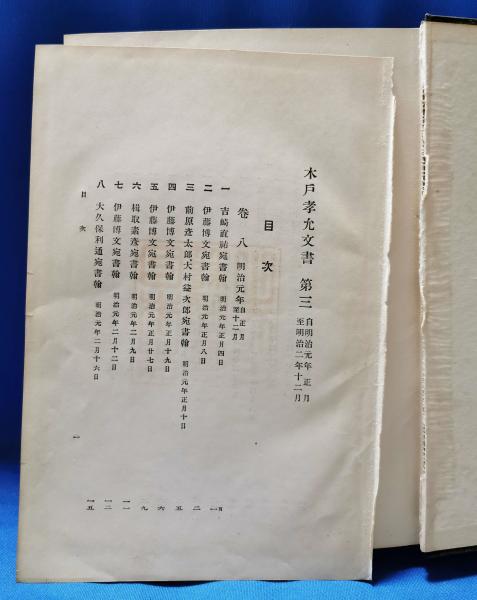 木戸孝允文書 第三 自明治元年正月 至明治二年十二月
目次
卷八 明治元年 自正月 至十二月
一 吉崎直祐宛書翰 明治元年正月四日 一頁
二 伊藤博文宛書翰 明治元年正月八日 二
三 前原彦太郎大村益次郎宛書翰 明治元年正月十日 五
四 伊藤博文宛書翰 明治元年正月十九日 六
五 伊藤博文宛書翰 明治元年正月廿七日 九
六 楫取素彦宛書翰 明治元年二月九日 一一
七 伊藤博文宛書翰 明治元年二月十二日 一二
八 大久保利通宛書翰 明治元年二月十六日 一五
目次
一